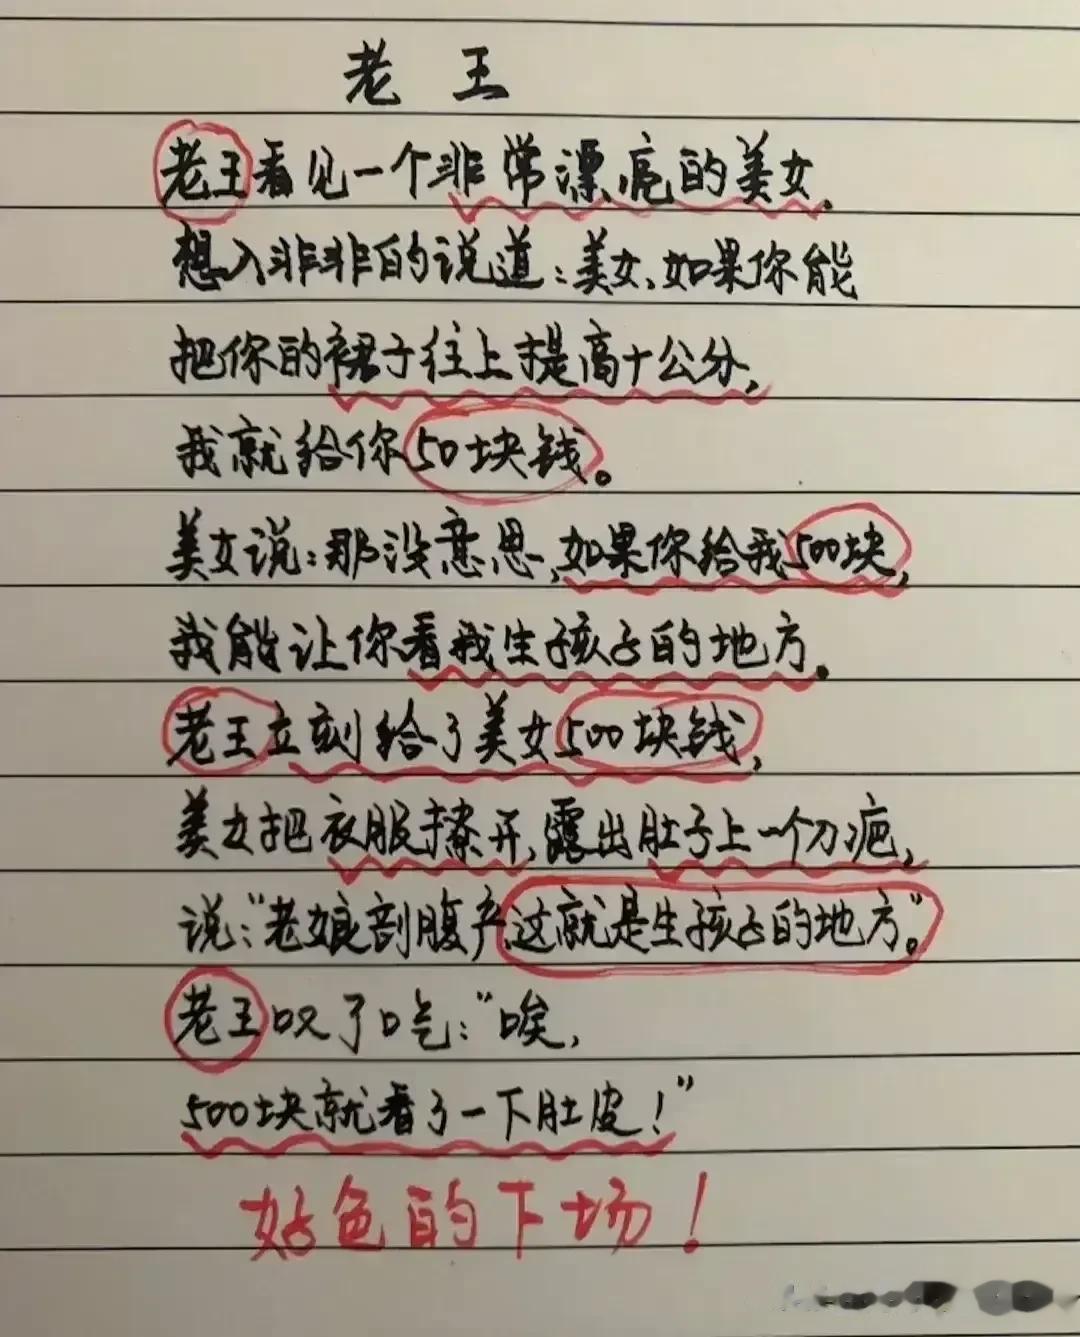 老王
老王看见一个非常漂亮的美女.
想入非非的说道:美女、如果你能
把你的裙子往上提高十公分,
我就给你50块钱。
美女说:那没意思,如果你给我500块,
我能让你看我生孩子的地方.
老王立刻给了美女500块钱,
美女把衣服撩开,露出肚子上一个刀疤,
说:"老娘剖腹产,这就是生孩子的地方"。
老王叹了口气:"唉,
500块就看了一下肚皮!"
好色的下场!